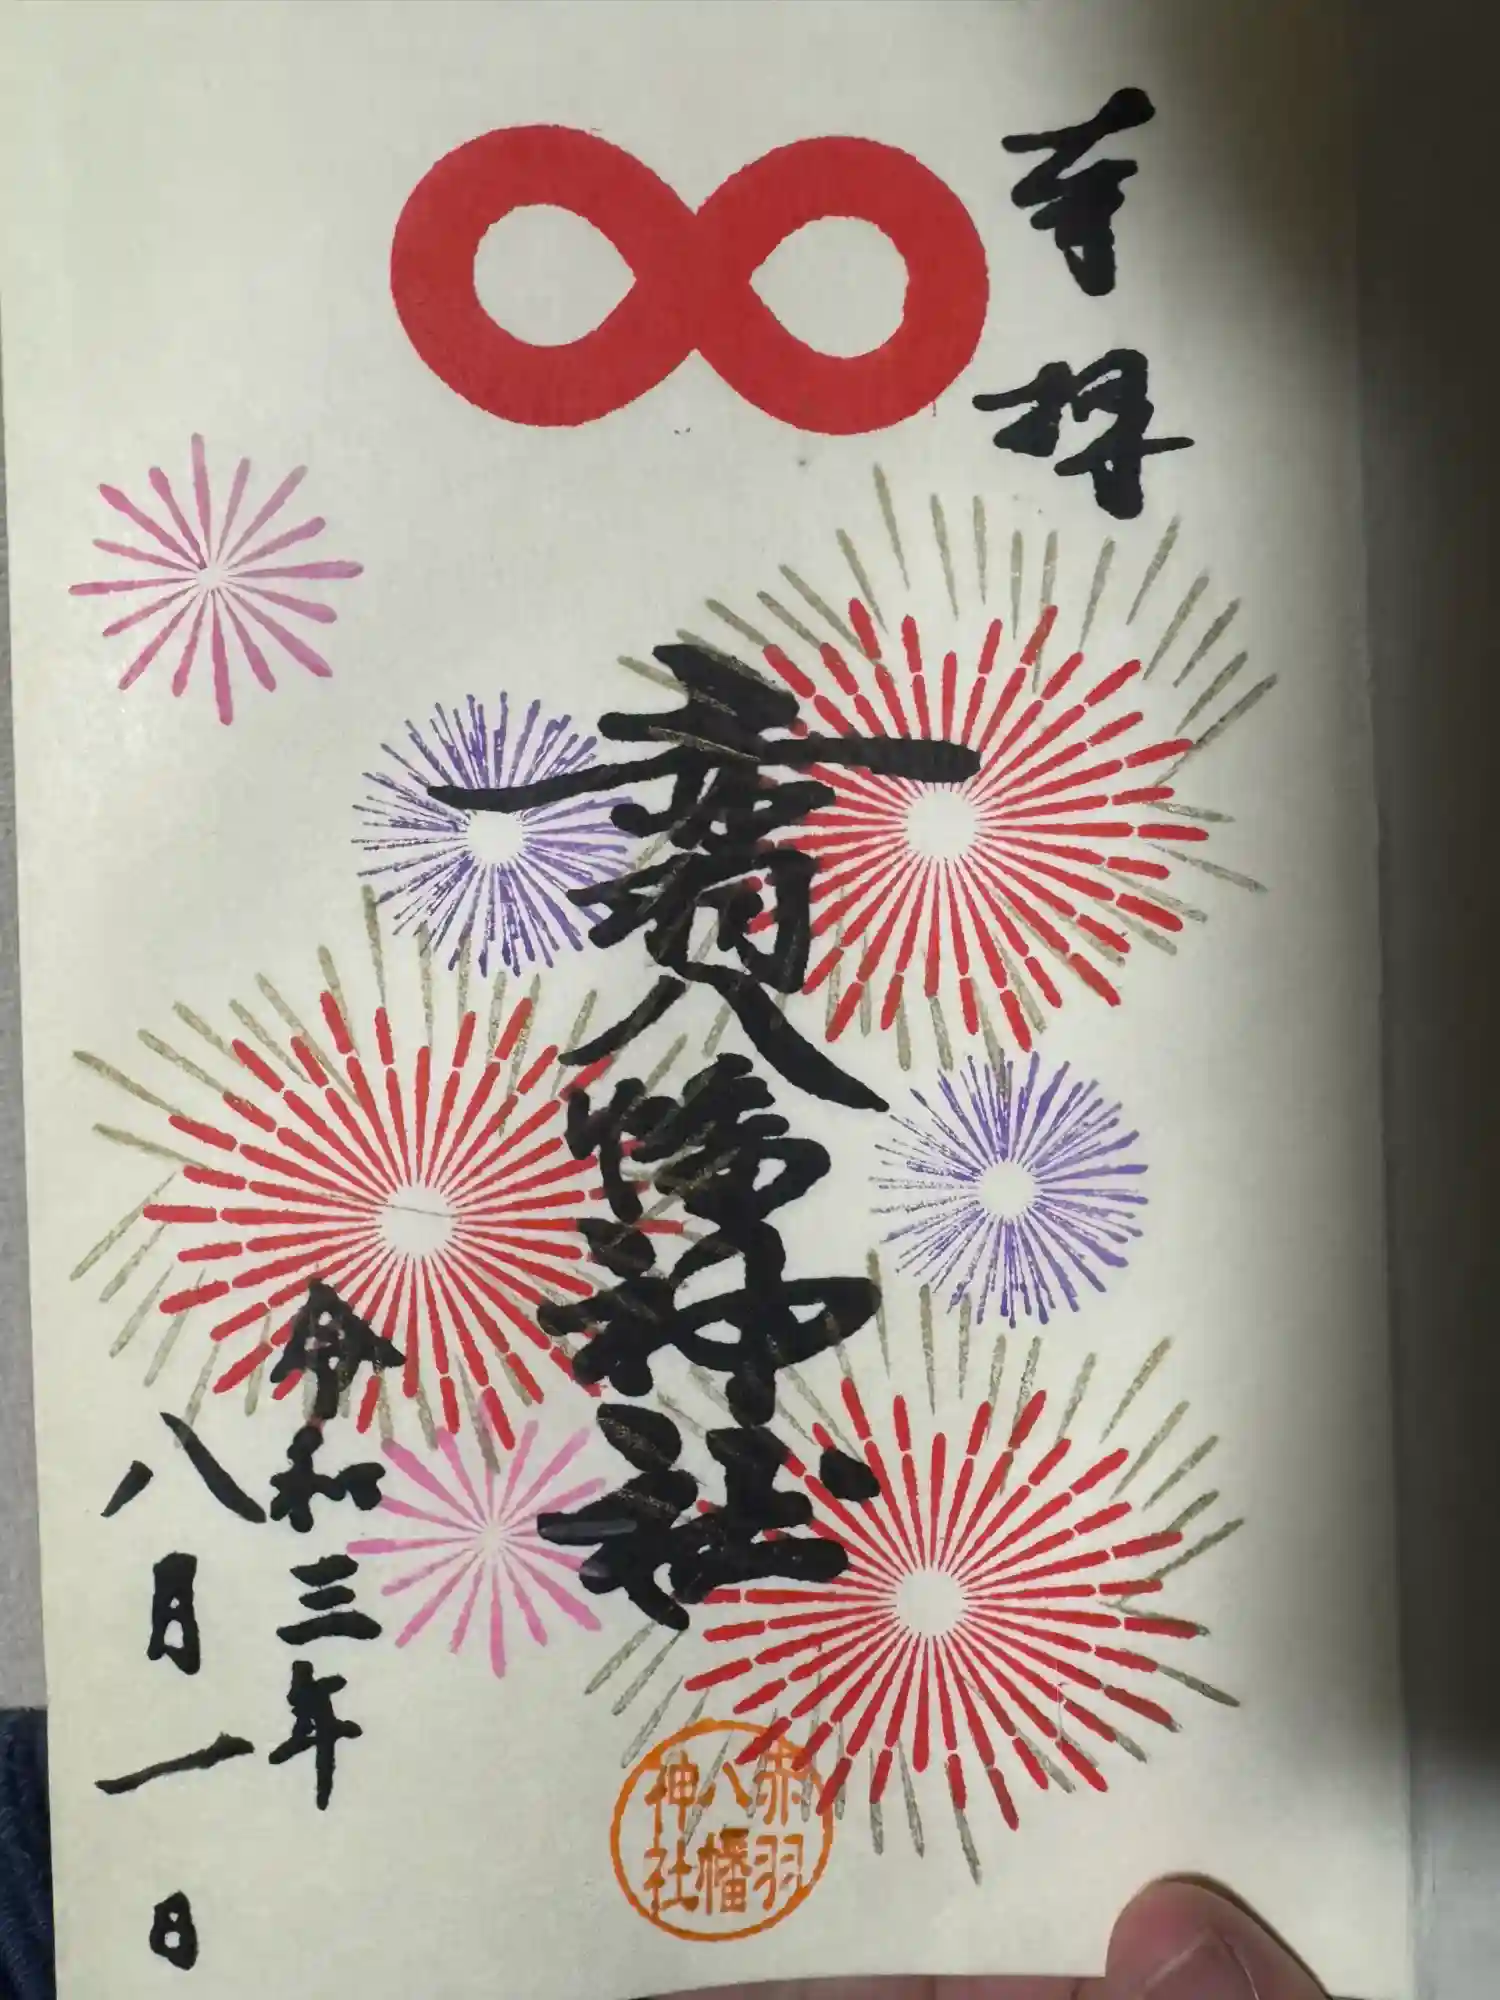 奉拝
赤羽八幡神社
令和三年
八月一日
赤羽
八幡
神社